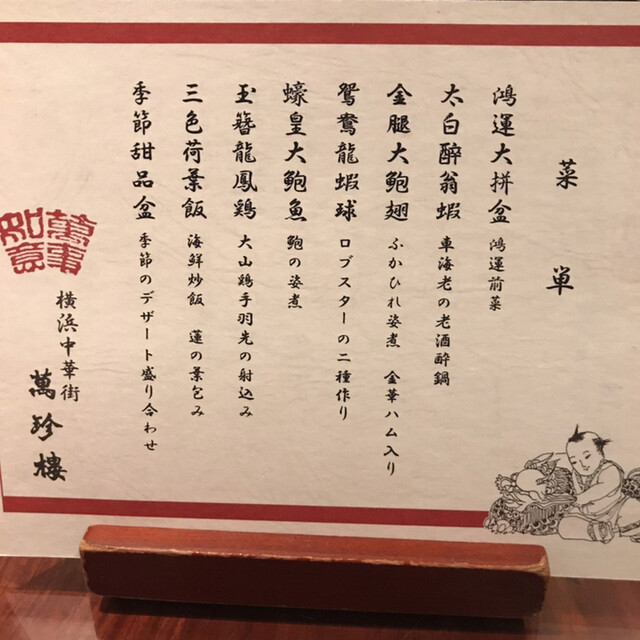 菜単
鴻運大拼盆 鴻運前菜
太白醉翁蝦 車海老の老酒醉鍋
金腿大鮑翅 ふかひれ姿煮 金華ハム入り
鴛鴦龍蝦球 ロブスターの二種作り
蠔皇大鮑魚 鮑の姿煮
玉簪龍鳳鶏 大山鶏手羽先の射込み
三色荷葉飯 海鮮炒飯 蓮の葉包み
季節甜品盆 季節のデザート盛り合わせ
横浜中華街
萬珍樓
萬事
如意